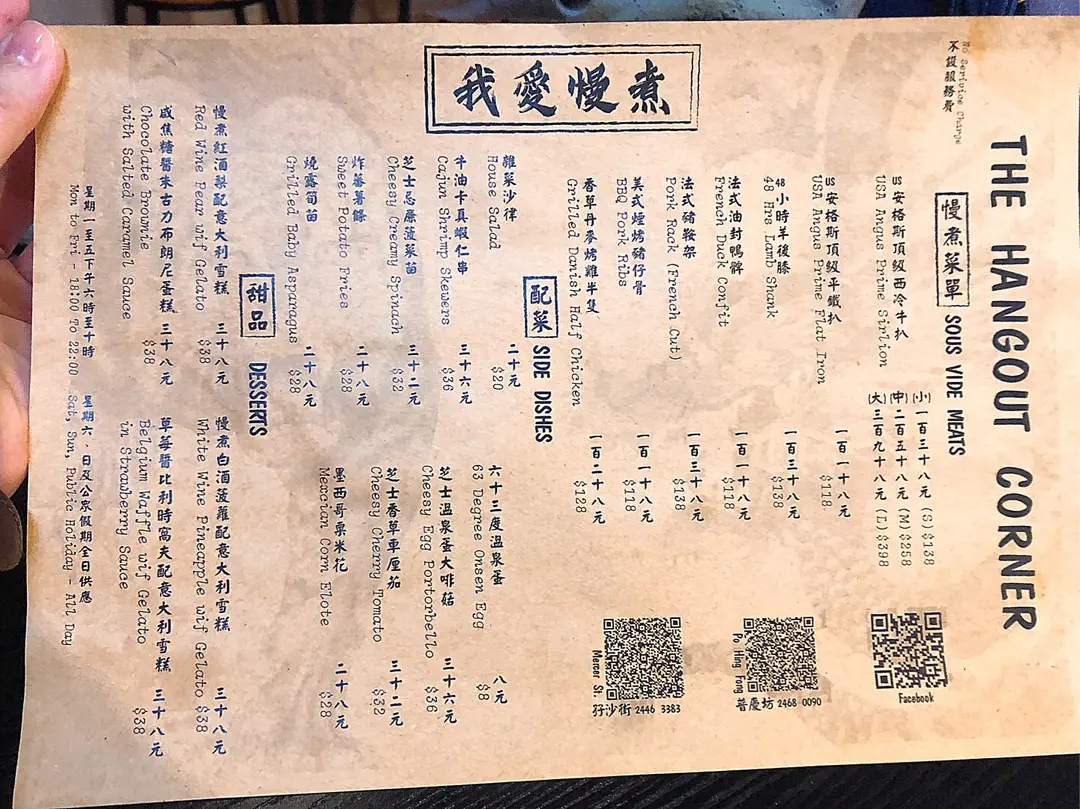 不設服務費
No Serivice Charge
THE HANGOUT CORNER
慢煮菜單 SOUS VIDE MEATS
US安格斯頂級西冷牛扒 (小)一百三十八元 (S)$138
USA Angus Prime Sirlion (中)二百五十八元 (M)$258
(大)三百九十八元 (L)$398
US安格斯頂級平鐵扒 一百一十八元
USA Angus Prime Flat Iron $118
48小時羊後膝 一百三十八元
48 Hrs Lamb Shank $138
法式油封鴨髀 一百一十八元
French Duck Confit $118
法式豬鞍架 一百三十八元
Pork Rack (French Cut) $138
美式煙烤豬仔骨 一百一十八元
BBQ Pork Ribs $118
香草丹麥烤雞半隻 一百二十八元
Grilled Danish Half Chicken $128
Facebook
Po Hing Fong
普慶坊 2468 0090
Mercer St.
孖沙街 2446 3383
我愛慢煮
配菜 SIDE DISHES
雜菜沙律 二十元
House Salad $20
牛油卡真蝦仁串 三十六元
Cajun Shrimp Skewers $36
芝士忌廉菠菜苗 三十二元
Cheesy Creamy Spinach $32
炸蕃薯條 二十八元
Sweet Potato Fries $28
燒露筍苗 二十八元
Grilled Baby Asparagus $28
六十三度溫泉蛋 八元
63 Degree Onsen Egg $8
芝士溫泉蛋大啡菇 三十六元
Cheesy Egg Portorbello $36
芝士香草車厘茄 三十二元
Cheesy Cherry Tomato $32
墨西哥粟米花 二十八元
Mexcian Corn Elote $28
甜品 DESSERTS
慢煮紅酒梨配意大利雪糕 三十八元
Red Wine Pear wif Gelato $38
咸焦糖醬朱古力布朗尼蛋糕 三十八元
Chocolate Brownie $38
with Salted Caramel Sauce
慢煮白酒菠蘿配意大利雪糕 三十八元
White Wine Pineapple wif Gelato $38
草莓醬比利時窩夫配意大利雪糕 三十八元
Belgium Waffle wif Gelato $38
in Strawberry Sauce
星期一至五下午六時至十時 星期六、日及公眾假期全日供應
Mon to Fri - 18:00 To 22:00 Sat, Sun, Public Holiday - All Day